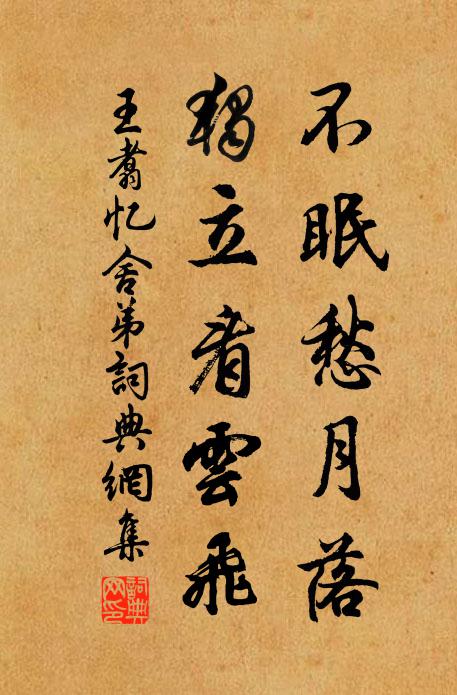 不眠愁月落
獨立看雲飛
王翥忆舍弟詞典網集
詞典网印